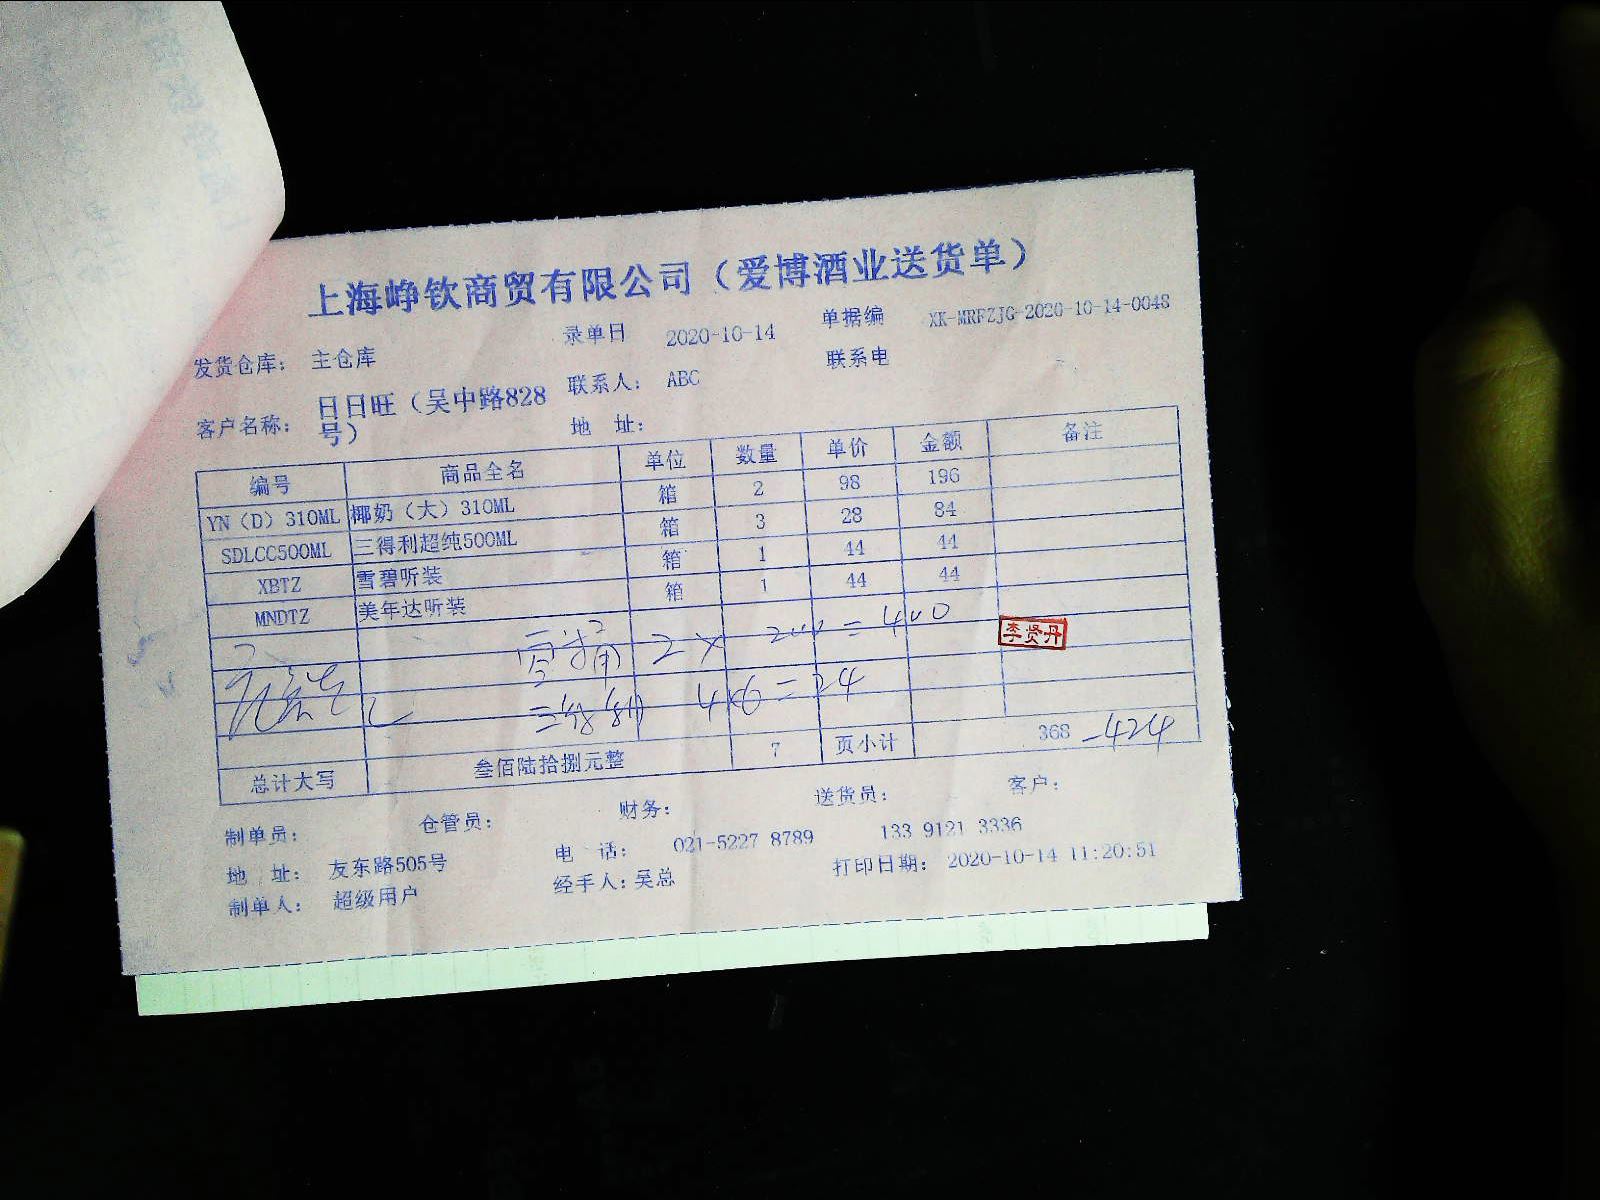 上海峥钦商贸有限公司（爱博酒业送货单）
发货仓库： 主仓库 录单日 2020-10-14 单据编 XK-MRFZJG-2020-10-14-0048
客户名称： 日日旺（吴中路828号） 联系人： ABC 联系电
地 址：
编号 商品全名 单位 数量 单价 金额 备注
YN（D）310ML 椰奶（大）310ML 箱 2 98 196
SDLCC500ML 三得利超纯500ML 箱 3 28 84
XBTZ 雪碧听装 箱 1 44 44
MNDTZ 美年达听装 箱 1 44 44
2× 200 = 400
李贤丹
4×6 = 24
7 页小计 368 -424
总计大写 叁佰陆拾捌元整
制单员： 仓管员： 财务： 送货员： 客户：
地 址： 友东路505号 电 话： 021-5227 8789 133 9121 3336
制单人： 超级用户 经手人：吴总 打印日期： 2020-10-14 11:20:51